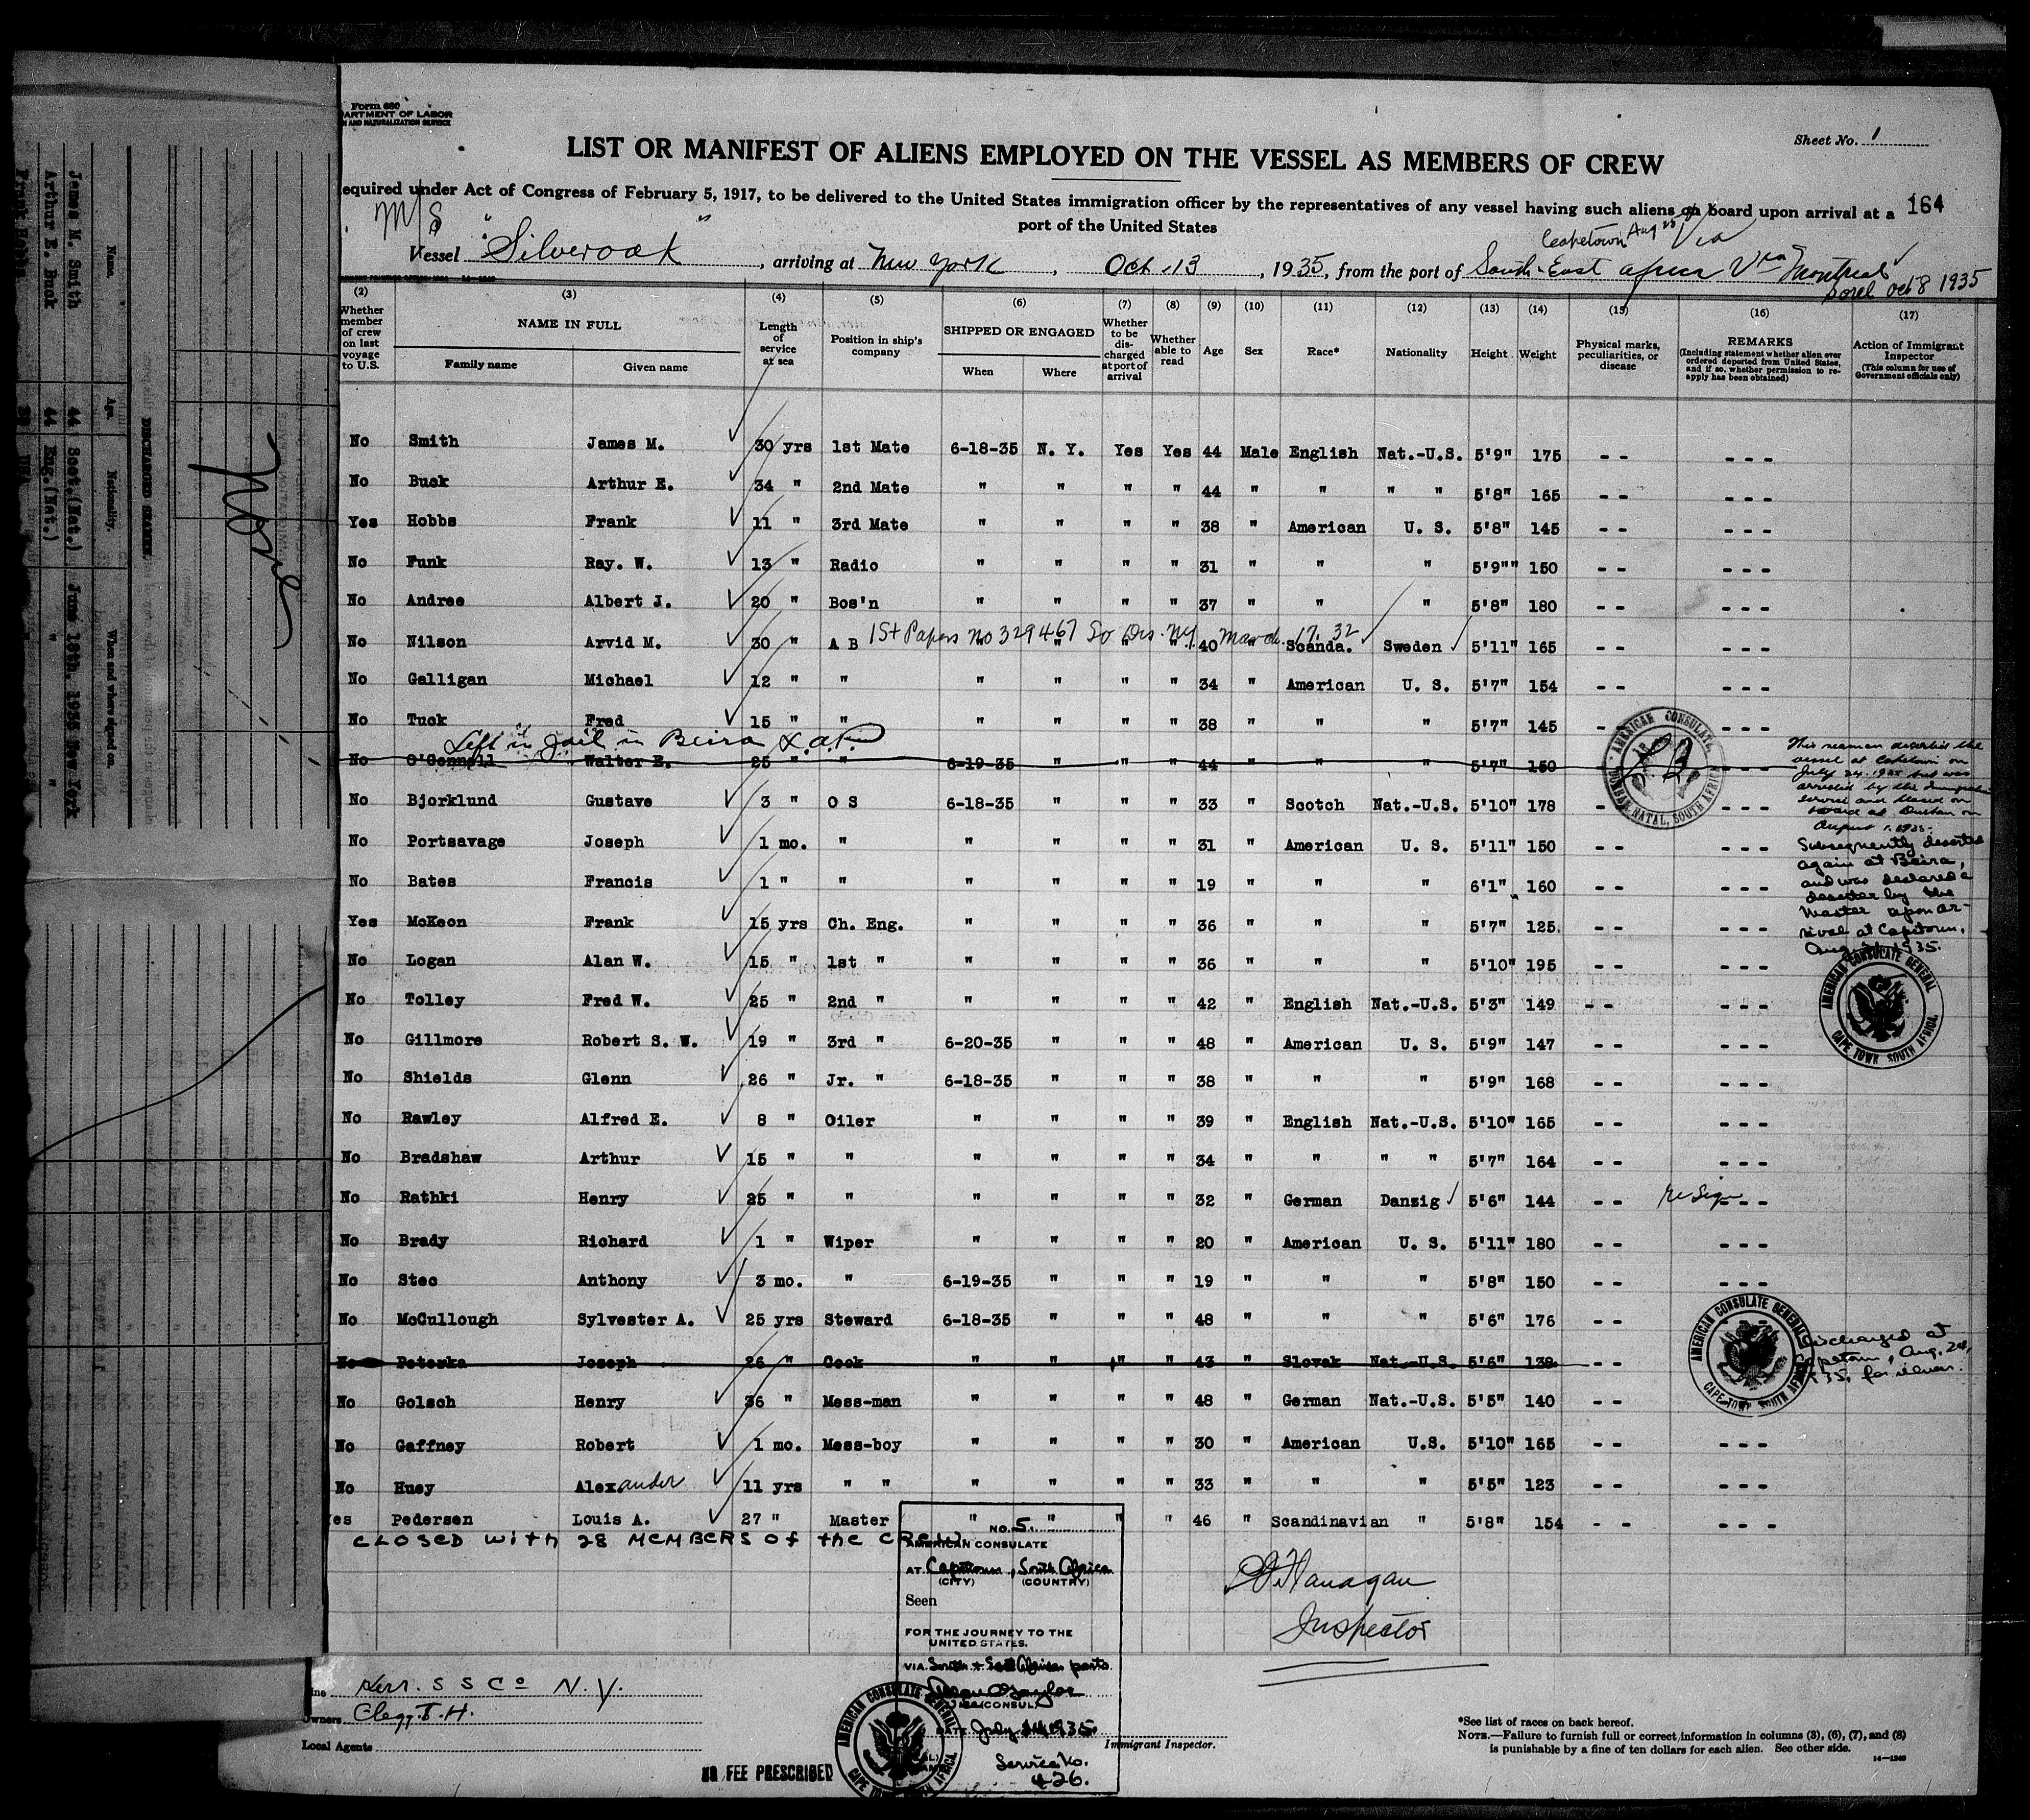 Form 680
DEPARTMENT OF LABOR
AND NATURALIZATION SERVICE
Sheet No. 1
LIST OR MANIFEST OF ALIENS EMPLOYED ON THE VESSEL AS MEMBERS OF CREW
equired under Act of Congress of February 5, 1917, to be delivered to the United States immigration officer by the representatives of any vessel having such aliens on board upon arrival at a
port of the United States
164
M/S
Capetown Aug 25 Via
Vessel "Silveroak", arriving at New York, Oct. 13, 1935, from the port of South-East Africa Via Montreal
Sorel Oct 8 1935
(2) (3) (4) (5) (6) (7) (8) (9) (10) (11) (12) (13) (14) (15) (16) (17)
Whether member of crew on last voyage to U.S. NAME IN FULL Family name Given name Length of service at sea Position in ship's company SHIPPED OR ENGAGED When Where Whether to be discharged at port of arrival Whether able to read Age Sex Race* Nationality Height Weight Physical marks, peculiarities, or disease REMARKS (Including statement whether alien ever ordered deported from United States, and if so, whether permission to reapply has been obtained) Action of Immigrant Inspector (This column for use of Government officials only)
No Smith James M. 30 yrs 1st Mate 6-18-35 N. Y. Yes Yes 44 Male English Nat.-U.S. 5'9" 175 -- ---
No Buck Arthur E. 34 " 2nd Mate " " " " 44 " " " " 5'8" 165 -- ---
Yes Hobbs Frank 11 " 3rd Mate " " " " 38 " American U. S. 5'8" 145 -- ---
No Funk Ray. W. 13 " Radio " " " " 31 " " " 5'9"" 150 -- ---
No Andree Albert J. 20 " Bos'n " " " " 37 " " " 5'8" 180 -- ---
1st Papers No 329467 So Dis. NY. March 17. 32
No Nilson Arvid M. 30 " A B " " " " 40 " Scanda. Sweden 5'11" 165 -- ---
No Galligan Michael 12 " " " " " " 34 " American U. S. 5'7" 154 -- ---
No Tuck Fred 15 " " " " " " 38 " " " 5'7" 145 - ---
Left in jail in Beira
No O'Connell Walter E. 25 " " 6-19-35 " " " 44 " " " 5'7" 150 ---
No Bjorklund Gustave 3 " O S 6-18-35 " " " 33 " Scotch Nat.-U.S. 5'10" 178 - ---
No Portsavage Joseph 1 mo. " " " " " 31 " American U. S. 5'11" 150 -- ---
No Bates Francis 1 " " " " " " 19 " " " 6'1" 160 -- ---
Yes McKeon Frank 15 yrs Ch. Eng. " " " " 36 " " " 5'7" 125 -- ---
No Logan Alan W. 15 " 1st " " " " " 36 " " " 5'10" 195 -- ---
No Tolley Fred W. 25 " 2nd " " " " " 42 " English Nat.-U.S. 5'3" 149 -- ---
No Gillmore Robert S. W. 19 " 3rd " 6-20-35 " " " 48 " American U. S. 5'9" 147 -- ---
No Shields Glenn 26 " Jr. " 6-18-35 " " " 38 " " " 5'9" 168 -- ---
No Rawley Alfred E. 8 " Oiler " " " " 39 " English Nat.-U.S. 5'10" 165 -- ---
No Bradshaw Arthur 15 " " " " " " 34 " " " " 5'7" 164 -- ---
No Rathki Henry 25 " " " " " " 32 " German Danzig 5'6" 144 -- re Sign ---
No Brady Richard 1 " Wiper " " " " 20 " American U. S. 5'11" 180 -- ---
No Stec Anthony 3 mo. " 6-19-35 " " " 19 " " " 5'8" 150 -- ---
No McCullough Sylvester A. 25 yrs Steward 6-18-35 " " " 48 " " " 5'6" 176 -- ---
No Peterka Joseph 26 " Cook " " " " 43 " Slovak Nat.-U.S. 5'6" 138 --
No Golsch Henry 36 " Mess-man " " " " 48 " German Nat.-U.S. 5'5" 140 -- ---
No Gaffney Robert 1 mo. Mess-boy " " " " 30 " American U.S. 5'10" 165 -- ---
No Huey Alexander 11 yrs " " " " " " 33 " " " 5'5" 123 -- ---
es Pedersen Louis A. 27 " Master " " " " 46 " Scandinavian " 5'8" 154 -- ---
CLOSED with 28 MEMBERS of the CREW
This seaman deserted the
vessel at Capetown on
July 24. 1935 but was
arrested by the Immigration
service and placed on
board at Durban on
August 1. 1935.
Subsequently deserted
again at Beira,
and was declared a
deserter by the
Master upon ar-
rival at Capetown,
Aug 1935.
AMERICAN CONSULATE, DURBAN, NATAL, SOUTH AFRICA
AMERICAN CONSULATE GENERAL CAPE TOWN SOUTH AFRICA.
AMERICAN CONSULATE GENERAL CAPE TOWN SOUTH AFRICA
Discharged at
Capetown, Aug. 24,
1935, for illness.
No. 5.
AMERICAN CONSULATE
AT Capetown, South Africa
(CITY) (COUNTRY)
Seen
FOR THE JOURNEY TO THE
UNITED STATES.
VIA South & East African ports.
DATE July 24 1935
Service No.
426.
AMERICAN CONSULATE GENERAL CAPE TOWN SOUTH AFRICA
NO FEE PRESCRIBED
Flanagan
Inspector
Immigrant Inspector.
ine Kerr. S S Co N. Y.
Owners Clegg. T. H.
Local Agents
*See list of races on back hereof.
NOTE.—Failure to furnish full or correct information in columns (3), (6), (7), and (8)
is punishable by a fine of ten dollars for each alien. See other side.
14—1240
DISCHARGED SEAMEN
Name. Age. Nationality. When and where signed on.
James M. Smith 44 Scot.(Nat.) June 18th, 1935 New York
Arthur E. Buck 44 Eng.(Nat.) " "
Frank Hobbs 38
None